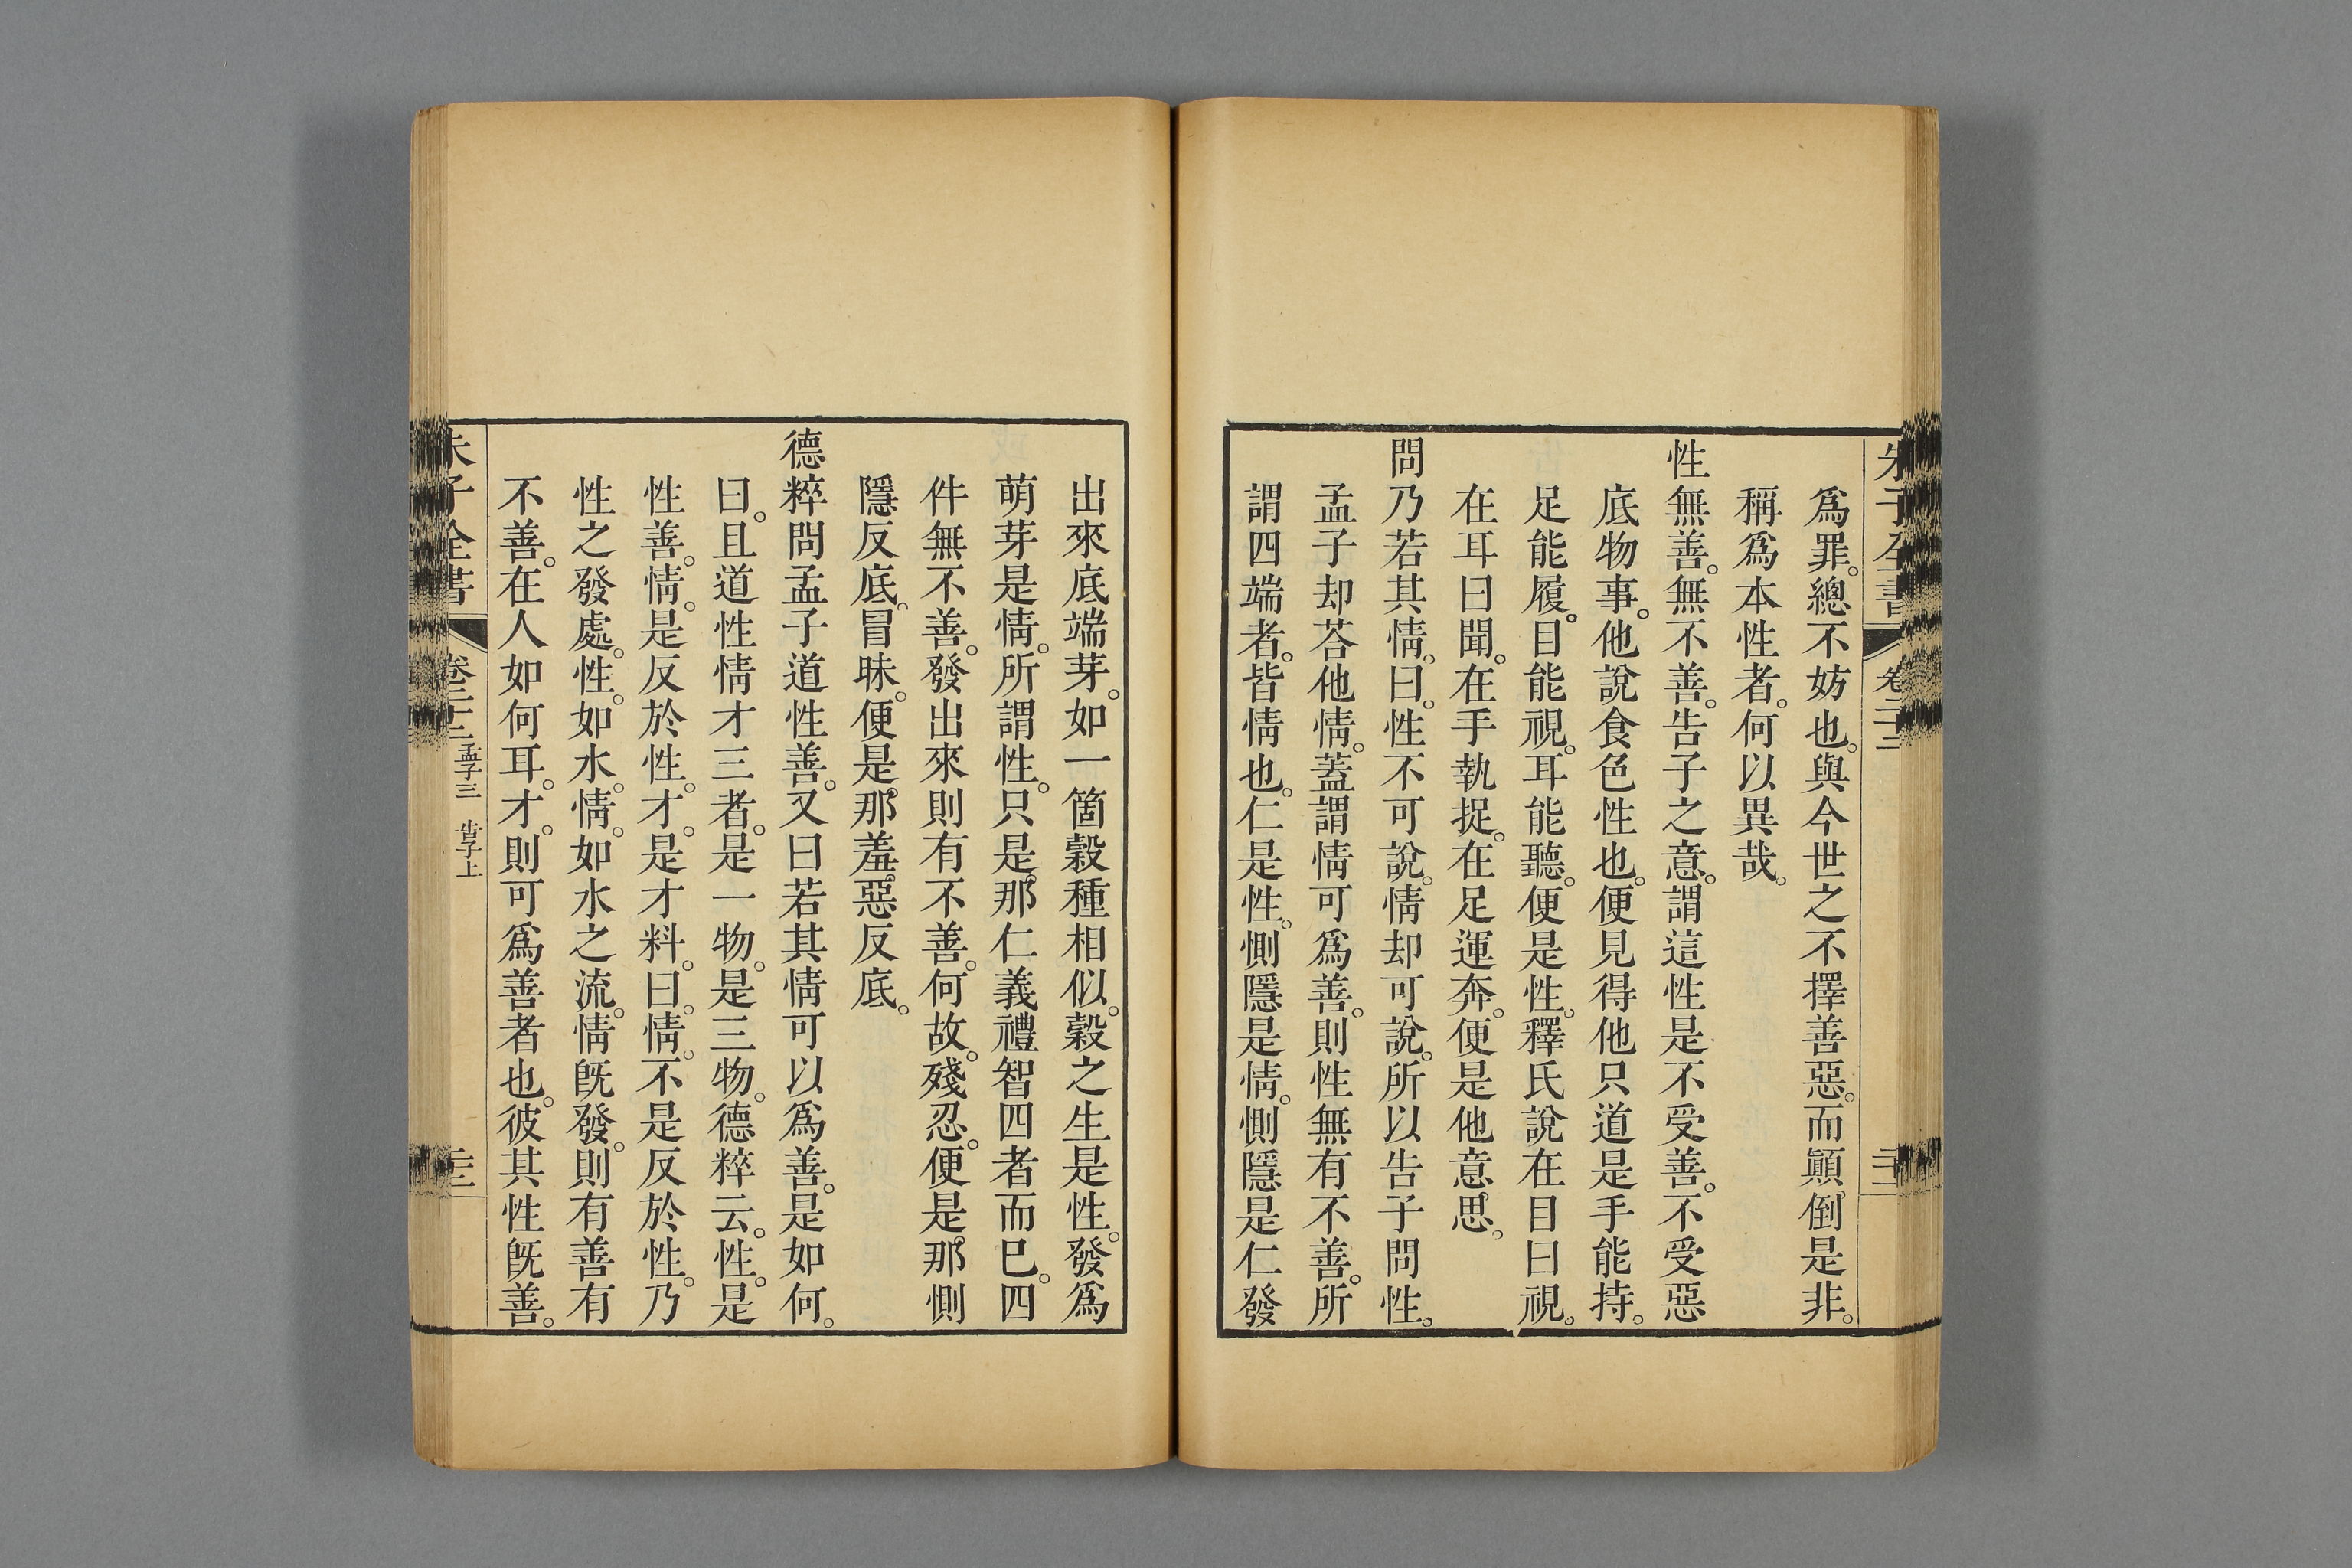 朱子全書 卷二十二
爲罪。總不妨也。與今世之不擇善惡。而顚倒是非。
稱爲本性者。何以異哉。
性無善。無不善。告子之意。謂這性是不受善。不受惡
底物事。他說食色性也。便見得他只道是手能持。
足能履。目能視。耳能聽。便是性。釋氏說在目曰視。
在耳曰聞。在手執捉。在足運奔。便是他意思。
問乃若其情。曰。性不可說。情却可說。所以告子問性。
孟子却荅他情。蓋謂情可爲善。則性無有不善。所
謂四端者。皆情也。仁是性。惻隱是情。惻隱是仁發
出來底端芽。如一箇穀種相似。穀之生是性。發爲
萌芽是情。所謂性。只是那仁義禮智四者而已。四
件無不善。發出來則有不善。何故。殘忍。便是那惻
隱反底。冒昧。便是那羞惡反底。
德粹問孟子道性善。又曰若其情可以爲善。是如何。
曰。且道性情才三者。是一物。是三物。德粹云。性。是
性善。情。是反於性。才。是才料。曰。情。不是反於性。乃
性之發處。性。如水。情。如水之流。情旣發。則有善有
不善。在人如何耳。才。則可爲善者也。彼其性旣善。
朱子全書 卷二十二 孟子三 告子上